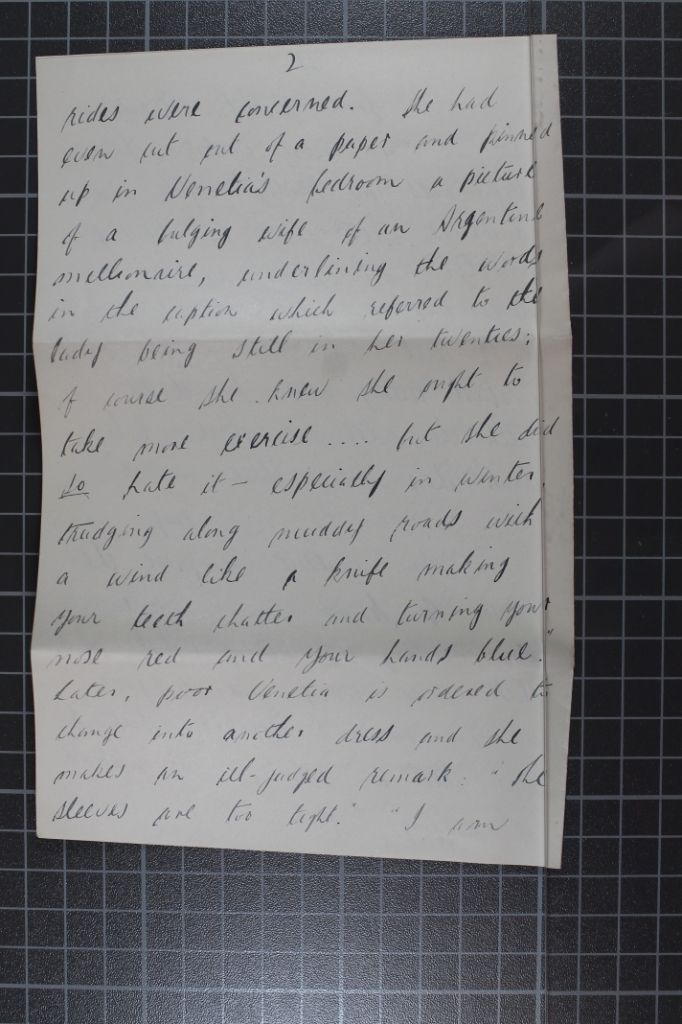 2
rides were concerned. She had
even cut out of a paper and pinned
up in Venetia's bedroom a picture
of a bulging wife of an Argentine
millionaire, underlining the words
in the caption which referred to the
lady being still in her twenties;
of course she knew she ought to
take more exercise .... but she did
so hate it — especially in winter,
trudging along muddy roads with
a wind like a knife making
your teeth chatter and turning your
nose red and your hands blue."
Later, poor Venetia is ordered to
change into another dress and she
makes an ill-judged remark: "The
sleeves are too tight." "I am